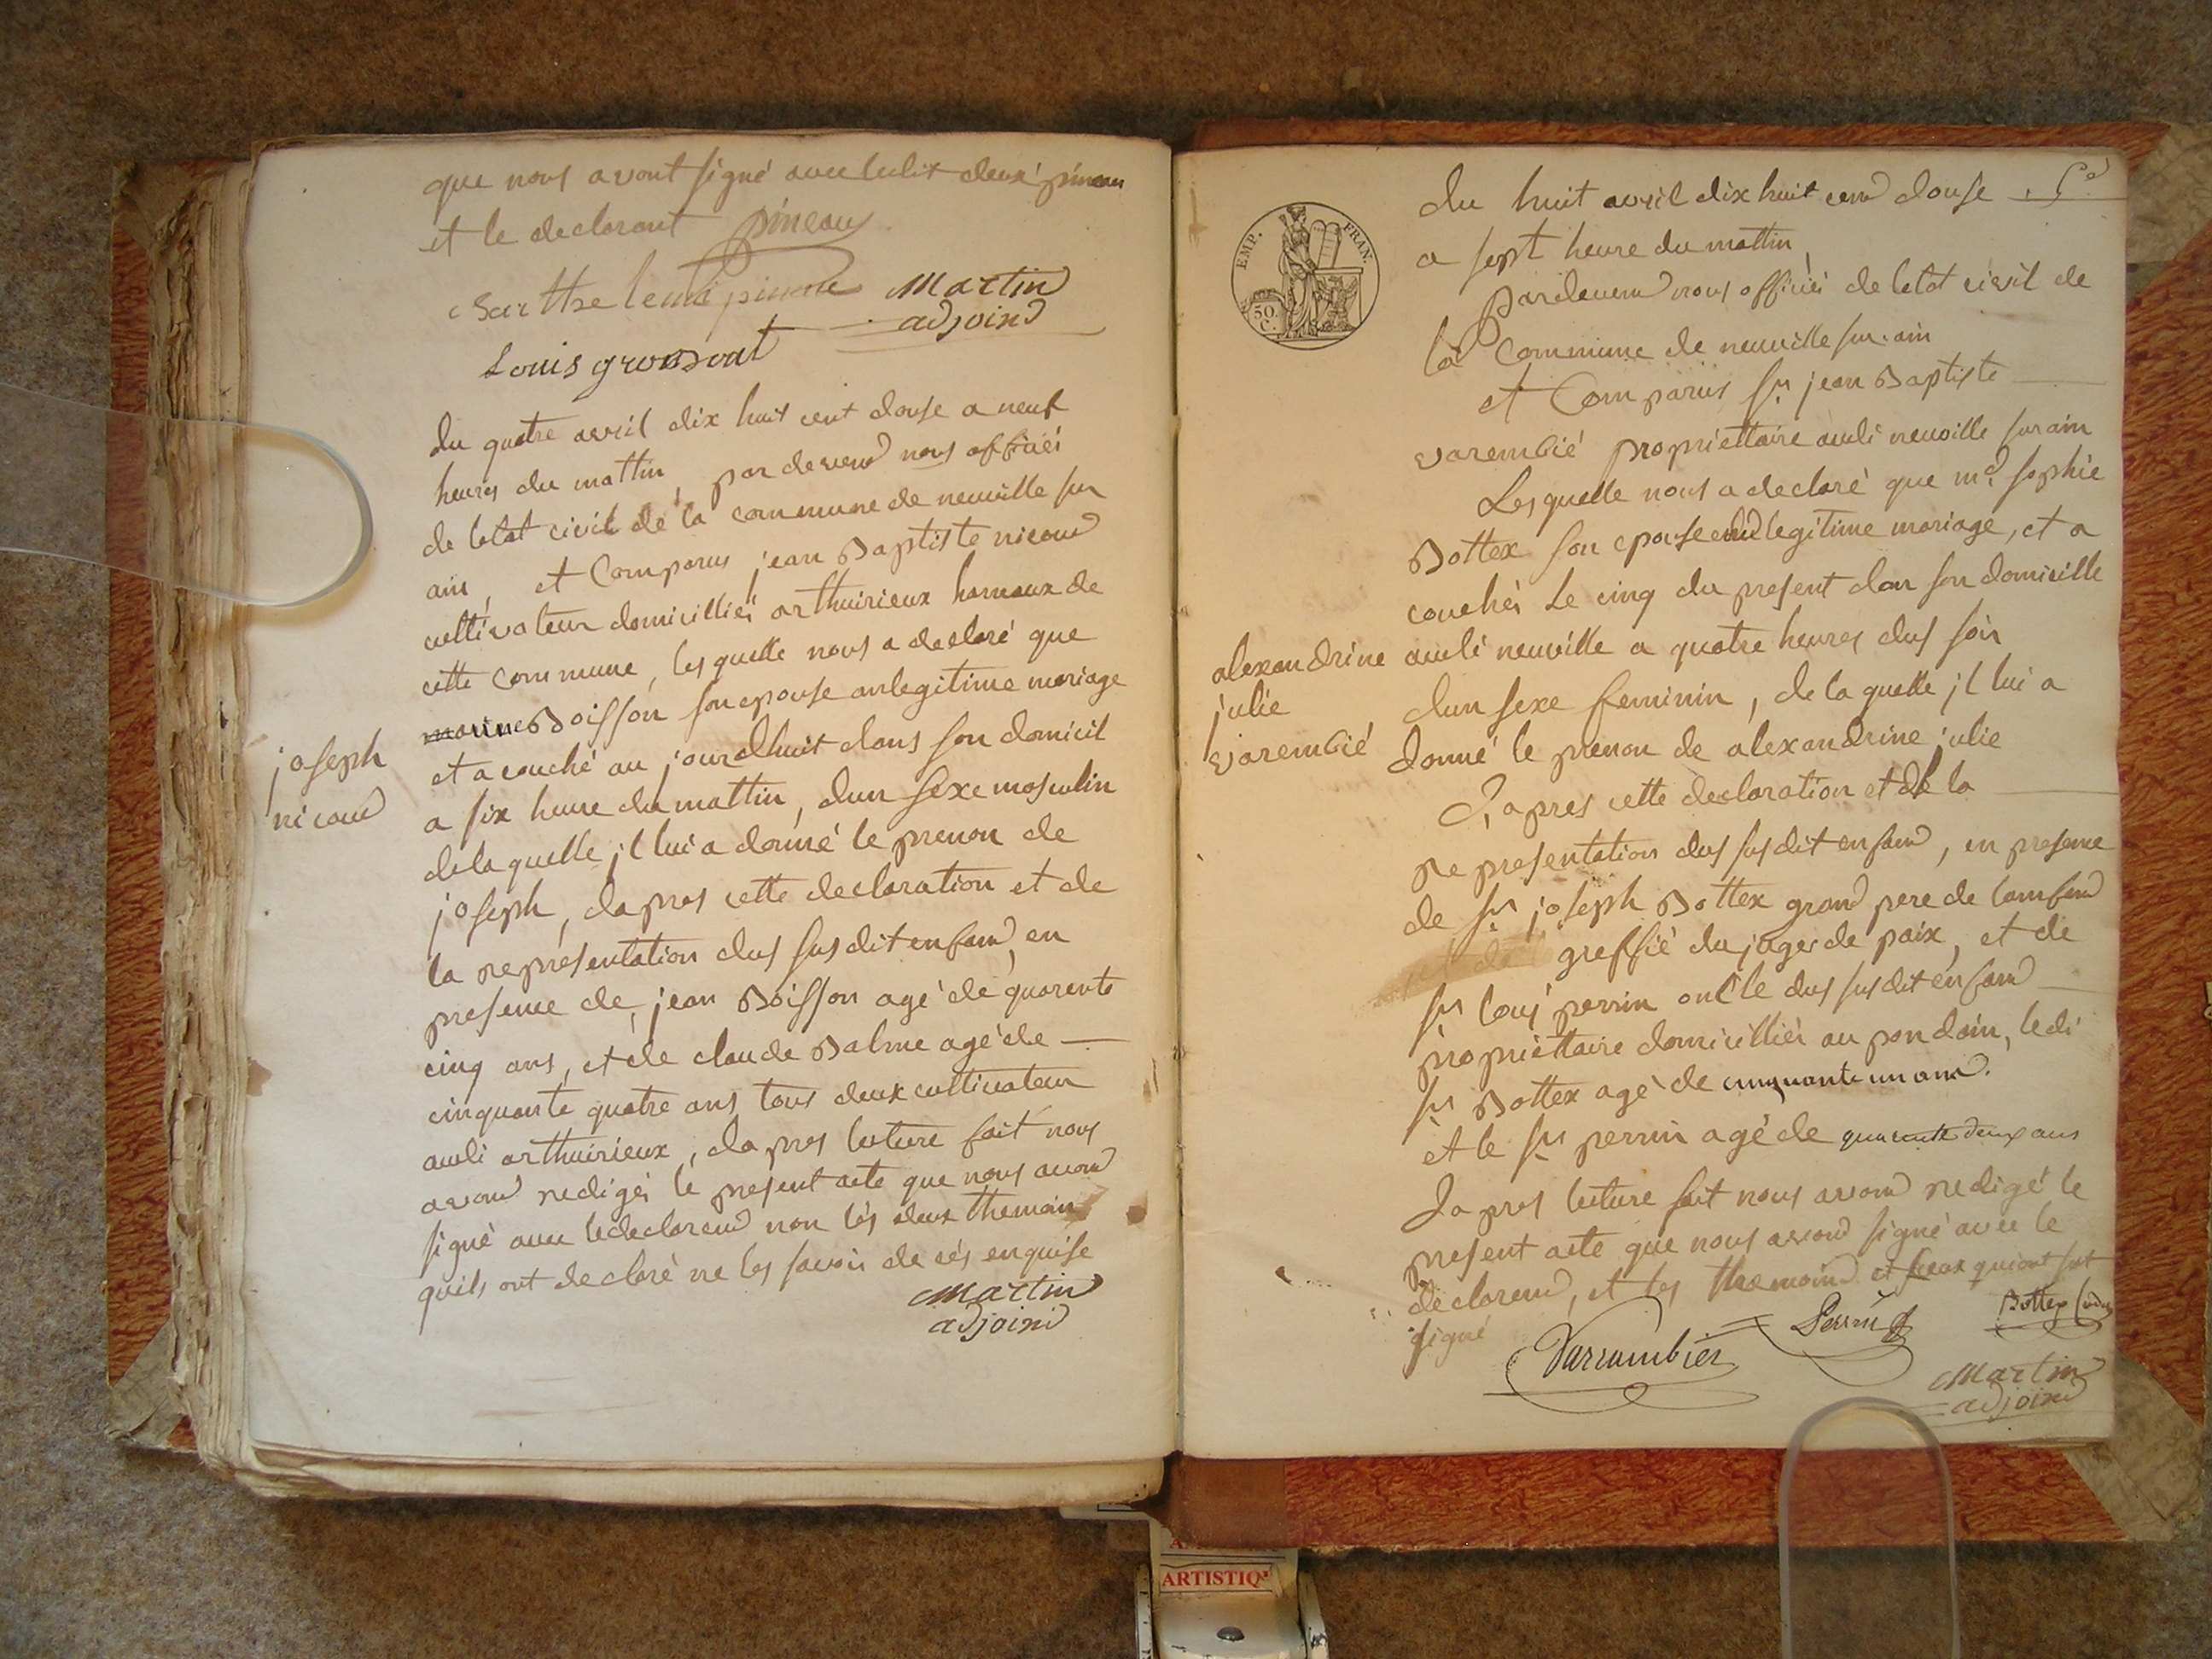 que nous avont signé avec ledit deux pineau
et le declarant pineau
Martin
adjoind
Louis
du quatre avril dix huit cent douse a neuf
heures du mattin, par devend nous officiéi
de letat civil de la commune de neuville sur
ain, et Comparus jean Baptiste nicoud
cultivateur domicilliéi arthuirieux hameaux de
cette Commune, les quelle nous a declaré que
Boisson son epouse anlegitime mariage
et a couché au jourdhuit dans son domicil
a six heure du mattin, dun sexe masculin
dela quelle jl lui a donné le prenon de
joseph, dapres cette declaration et de
la representation dus susdit enfand, en
presence de jean Boisson agé de quarente
cinq ans, et de claude Balme agé de
cinquante quatre ans tous deux cultivateur
audi arthuirieux, dapres luture fait nous
avond redigéi le present acte que nous avond
signé avec ledeclarend non lés deux themain
quils ont declaré ne les savoir de cés enquise
Martin
adjoind
joseph
nicoud
EMP. FRAN.
50.
C.
du huit avril dix huit cend douse
a sept heure du mattin
Pardevend nous officiéi de letat civil de
la Commune de neuville sur ain
et Comparus sr jean Baptiste
varembié propriéttaire audi neuville sur ain
Lesquelle nous a declaré que me sophie
Bottex son epouse legitime mariage, et a
couchéi Le cinq du present dan son domicille
audi neuville a quatre heures dus soir
dun sexe feminin, de la quelle jl lui a
donné le prenon de alexandrine julie
D,apres cette declaration et de la
representation dus susdit enfand, en presence
de sr joseph Bottex grand pere de lanfand
greffié du juge de paix, et de
sr louis perrin oncle dus susdit enfand
propriettaire domicilliéi au pondain, ledi
sr Bottex agé de cinquante un and.
et le sr perrin agé de quarante deux ans
Dapres luture fait nous avond redigé le
present acte que nous avond signé avec le
declarend, et les themoind et ceux qui ont sut
signé
alexandrine
julie
varembié
Varrambier
Perrin
Bottex
Martin
adjoind
ARTISTIQ